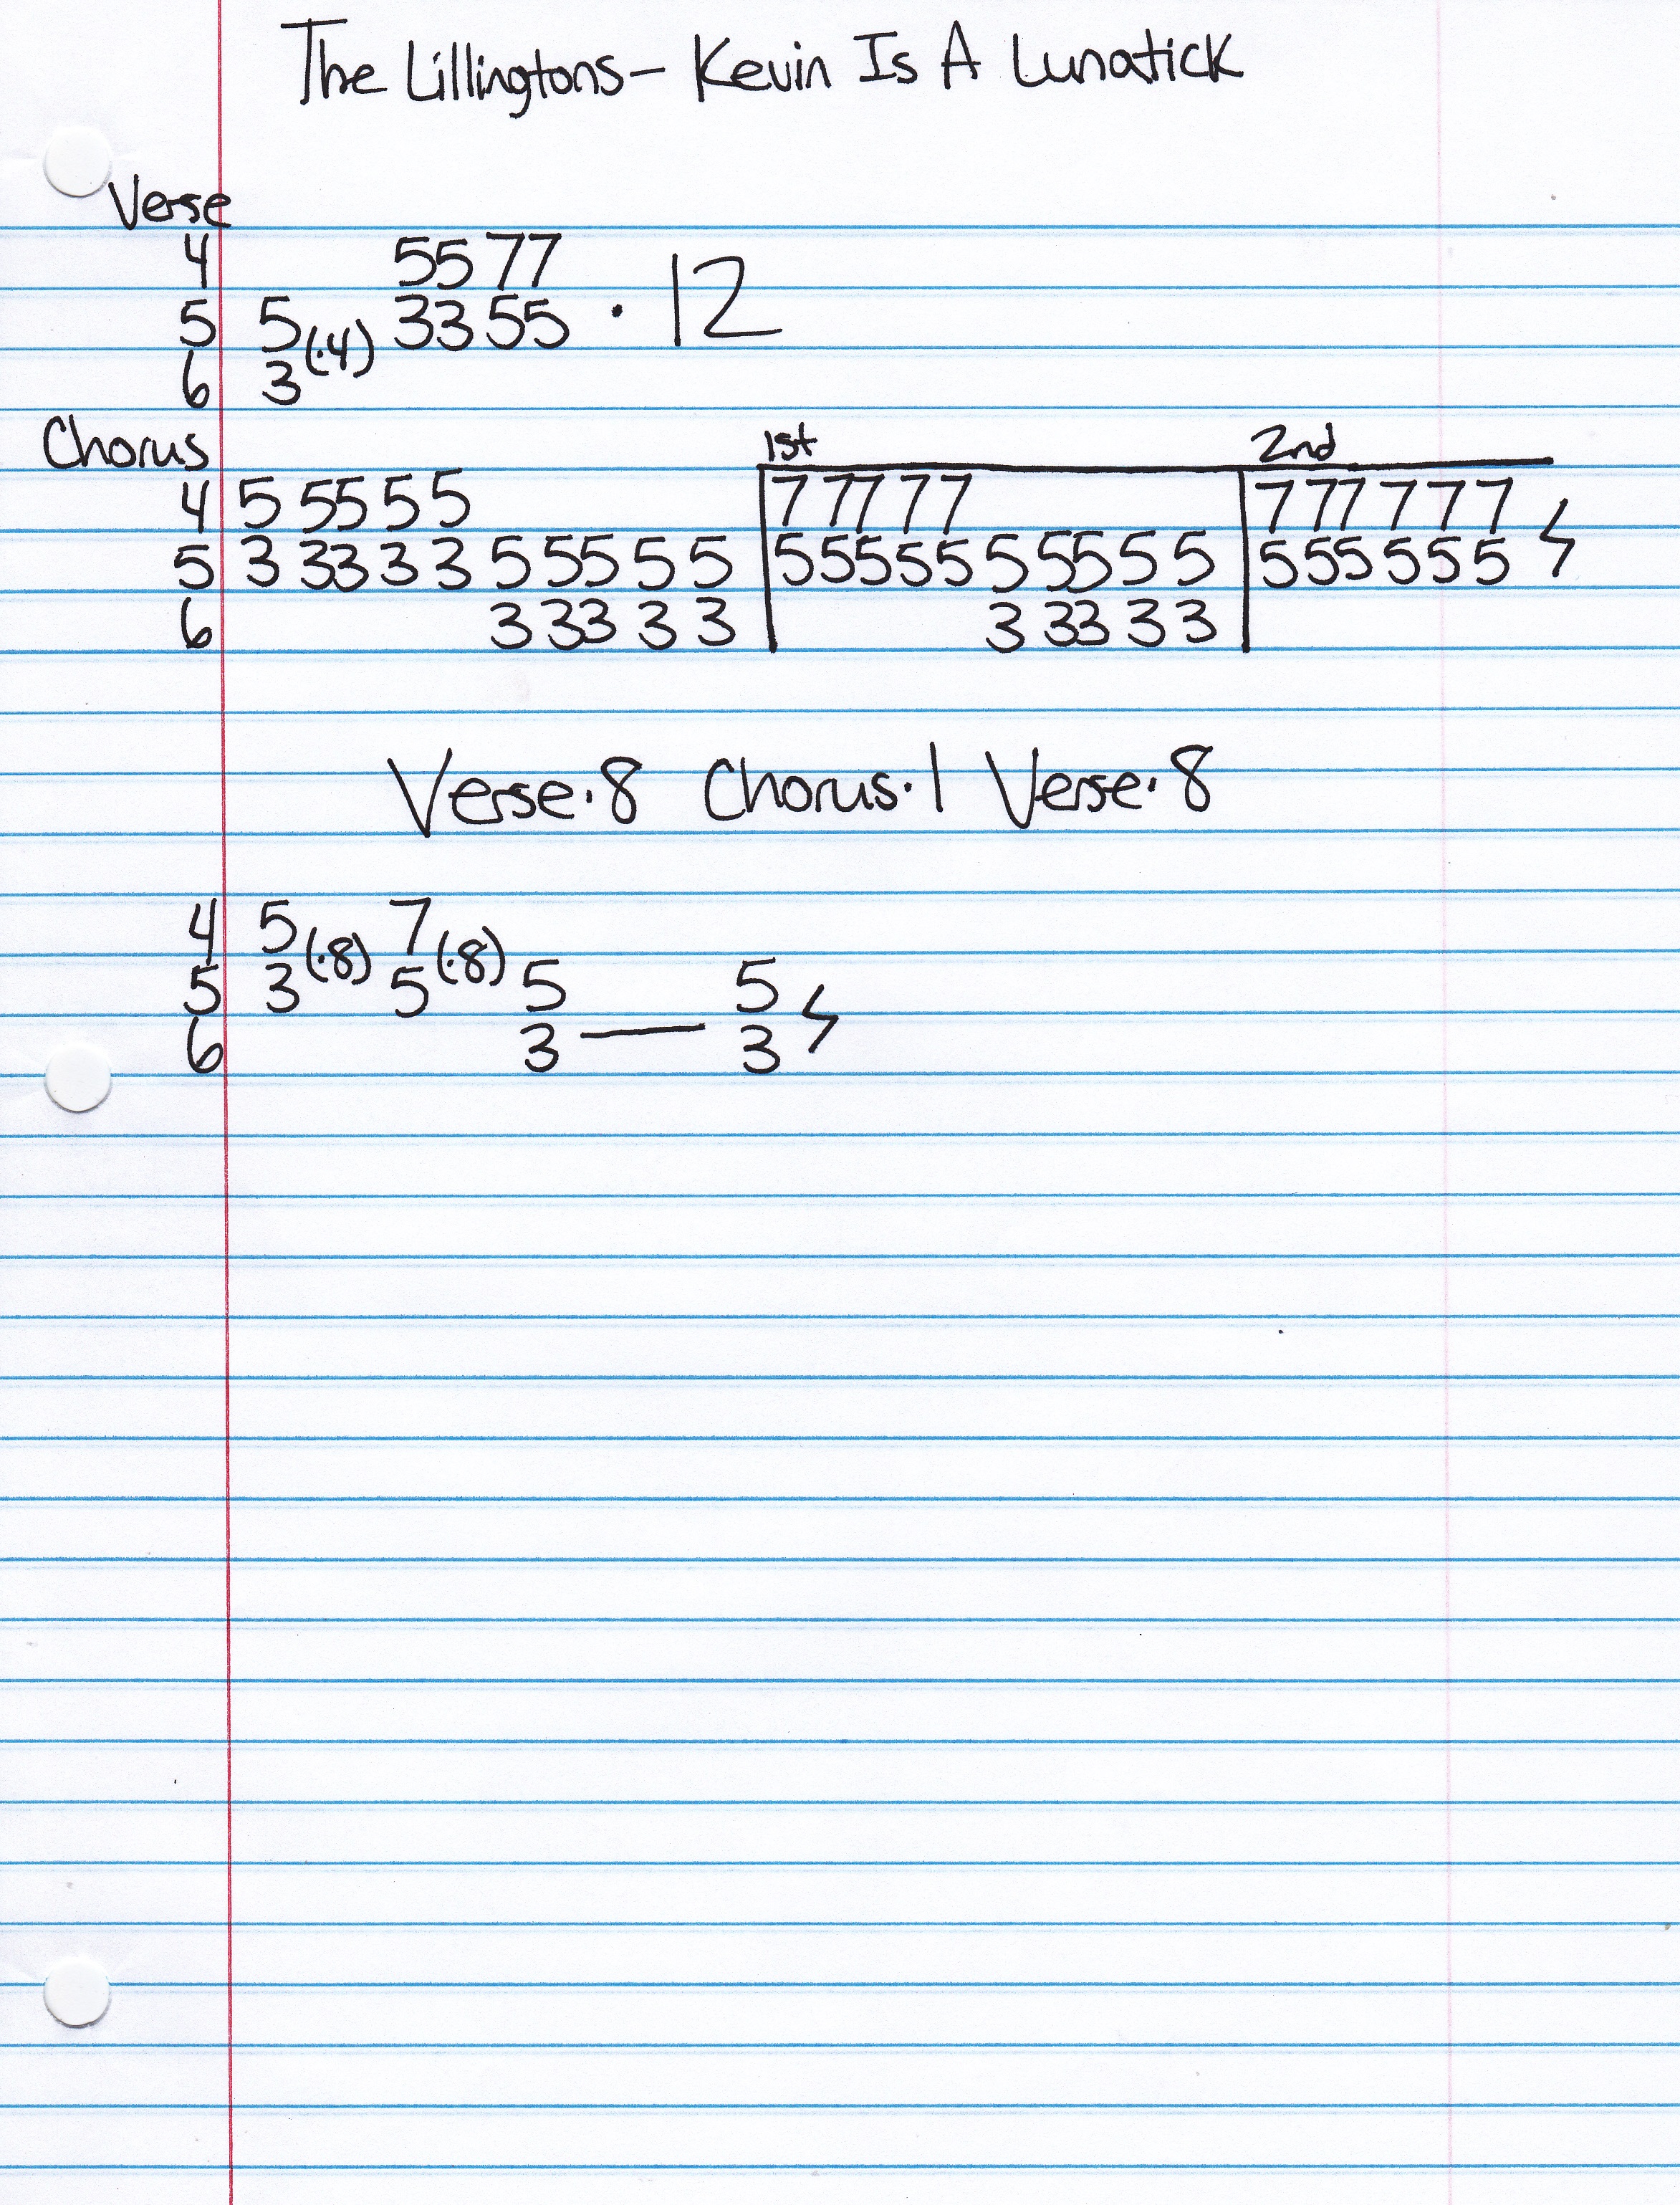 The Lillingtons - Kevin Is A Lunatick
Verse
4 55 77
5 5 (·4) 33 55 · 12
6 3
Chorus 1st 2nd
4 5 55 5 5 7 77 7 7 7 77 7 7 7
5 3 33 3 3 5 55 5 5 5 55 5 5 5 55 5 5 5 55 5 5 5
6 3 33 3 3 3 33 3 3
Verse·8 Chorus·1 Verse·8
4 5 (·8) 7 (·8)
5 3 5 5 5
6 3 — 3